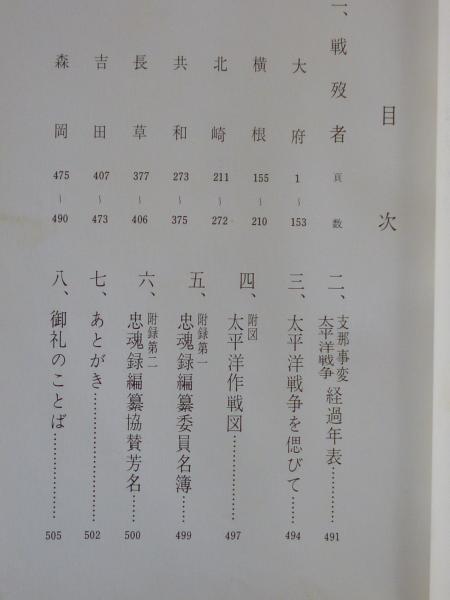 目次
一、戦歿者 頁数
大府 1〜153
横根 155〜210
北崎 211〜272
共和 273〜375
長草 377〜406
吉田 407〜473
森岡 475〜490
二、支那事変太平洋戦争経過年表……491
三、太平洋戦争を偲びて……494
四、附図太平洋作戦図…………497
五、附録第一忠魂録編纂委員名簿……499
六、附録第二忠魂録編纂協賛芳名……500
七、あとがき…………………502
八、御礼のことば……………505